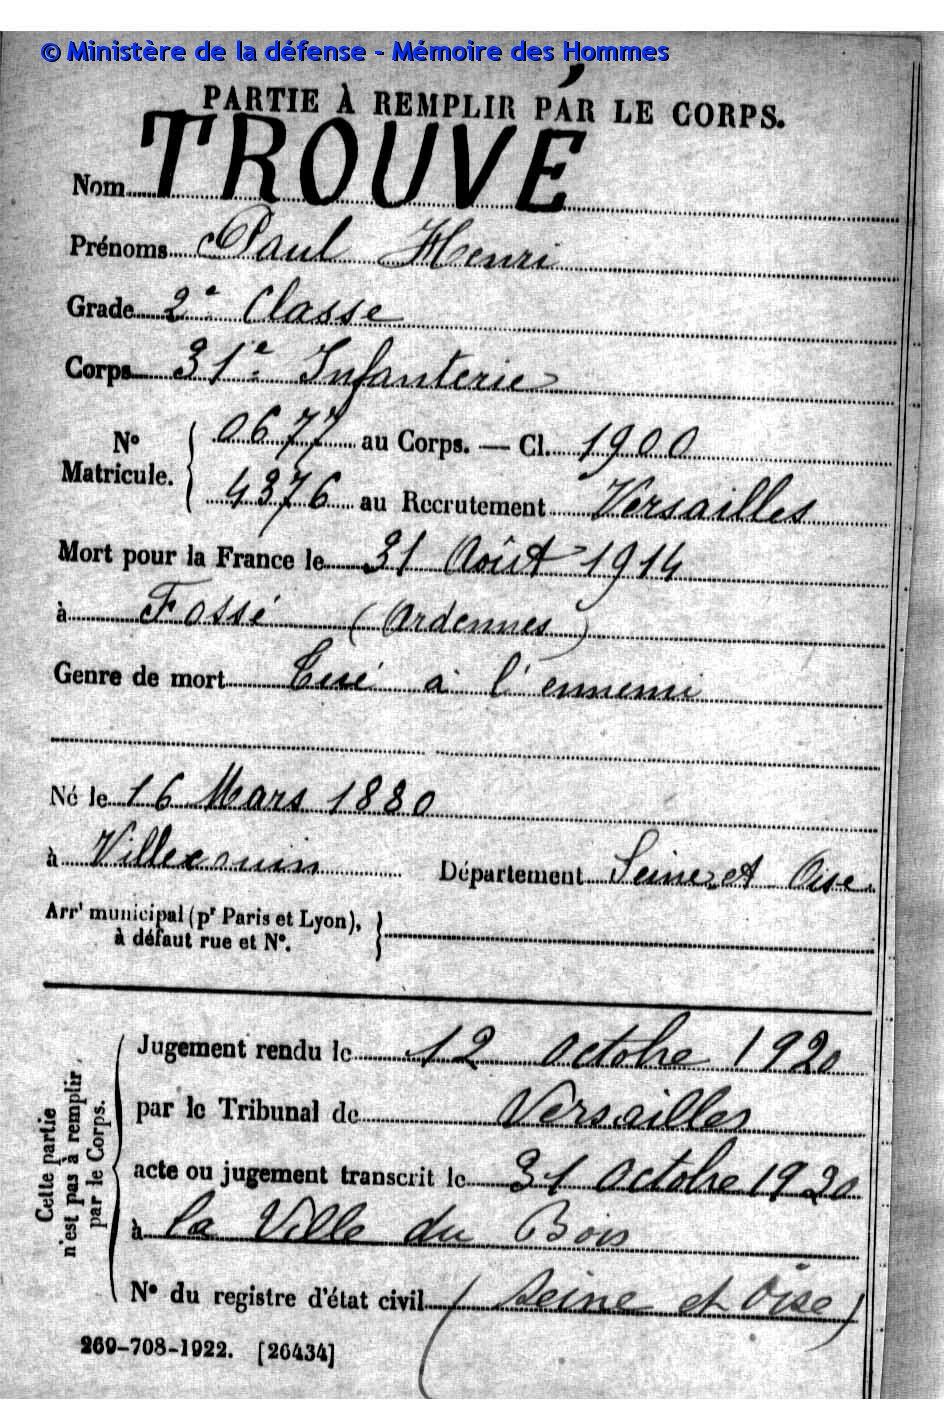 © Ministère de la défense - Mémoire des Hommes
PARTIE À REMPLIR PAR LE CORPS.
Nom TROUVÉ
Prénoms Paul Henri
Grade 2e Classe
Corps 31e Infanterie
No Matricule. { 0677 au Corps. — Cl. 1900
4376 au Recrutement Versailles
Mort pour la France le 31 Août 1914
à Fossé (Ardennes)
Genre de mort Tué à l'ennemi
Né le 16 Mars 1880
à Département Seine et Oise.
Arrt municipal (pr Paris et Lyon), à défaut rue et No. }
Cette partie n'est pas à remplir par le Corps. {
Jugement rendu le 12 octobre 1920
par le Tribunal de Versailles
acte ou jugement transcrit le 31 octobre 1920
à la Ville du Bois
No du registre d'état civil (Seine et Oise)
269-708-1922. [26434]